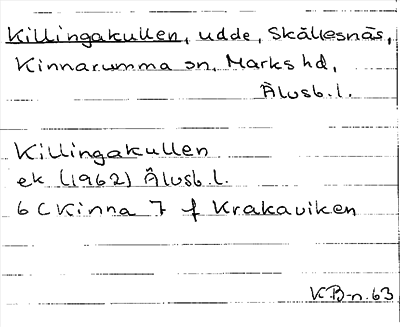 Killingakullen, udde, Skällesnäs,
Kinnarumma sn, Marks hd,
Älvsb. l.
Killingakullen
ek (1962) Älvsb l.
6 C Kinna 7 f Krakaviken
KB-n. 63